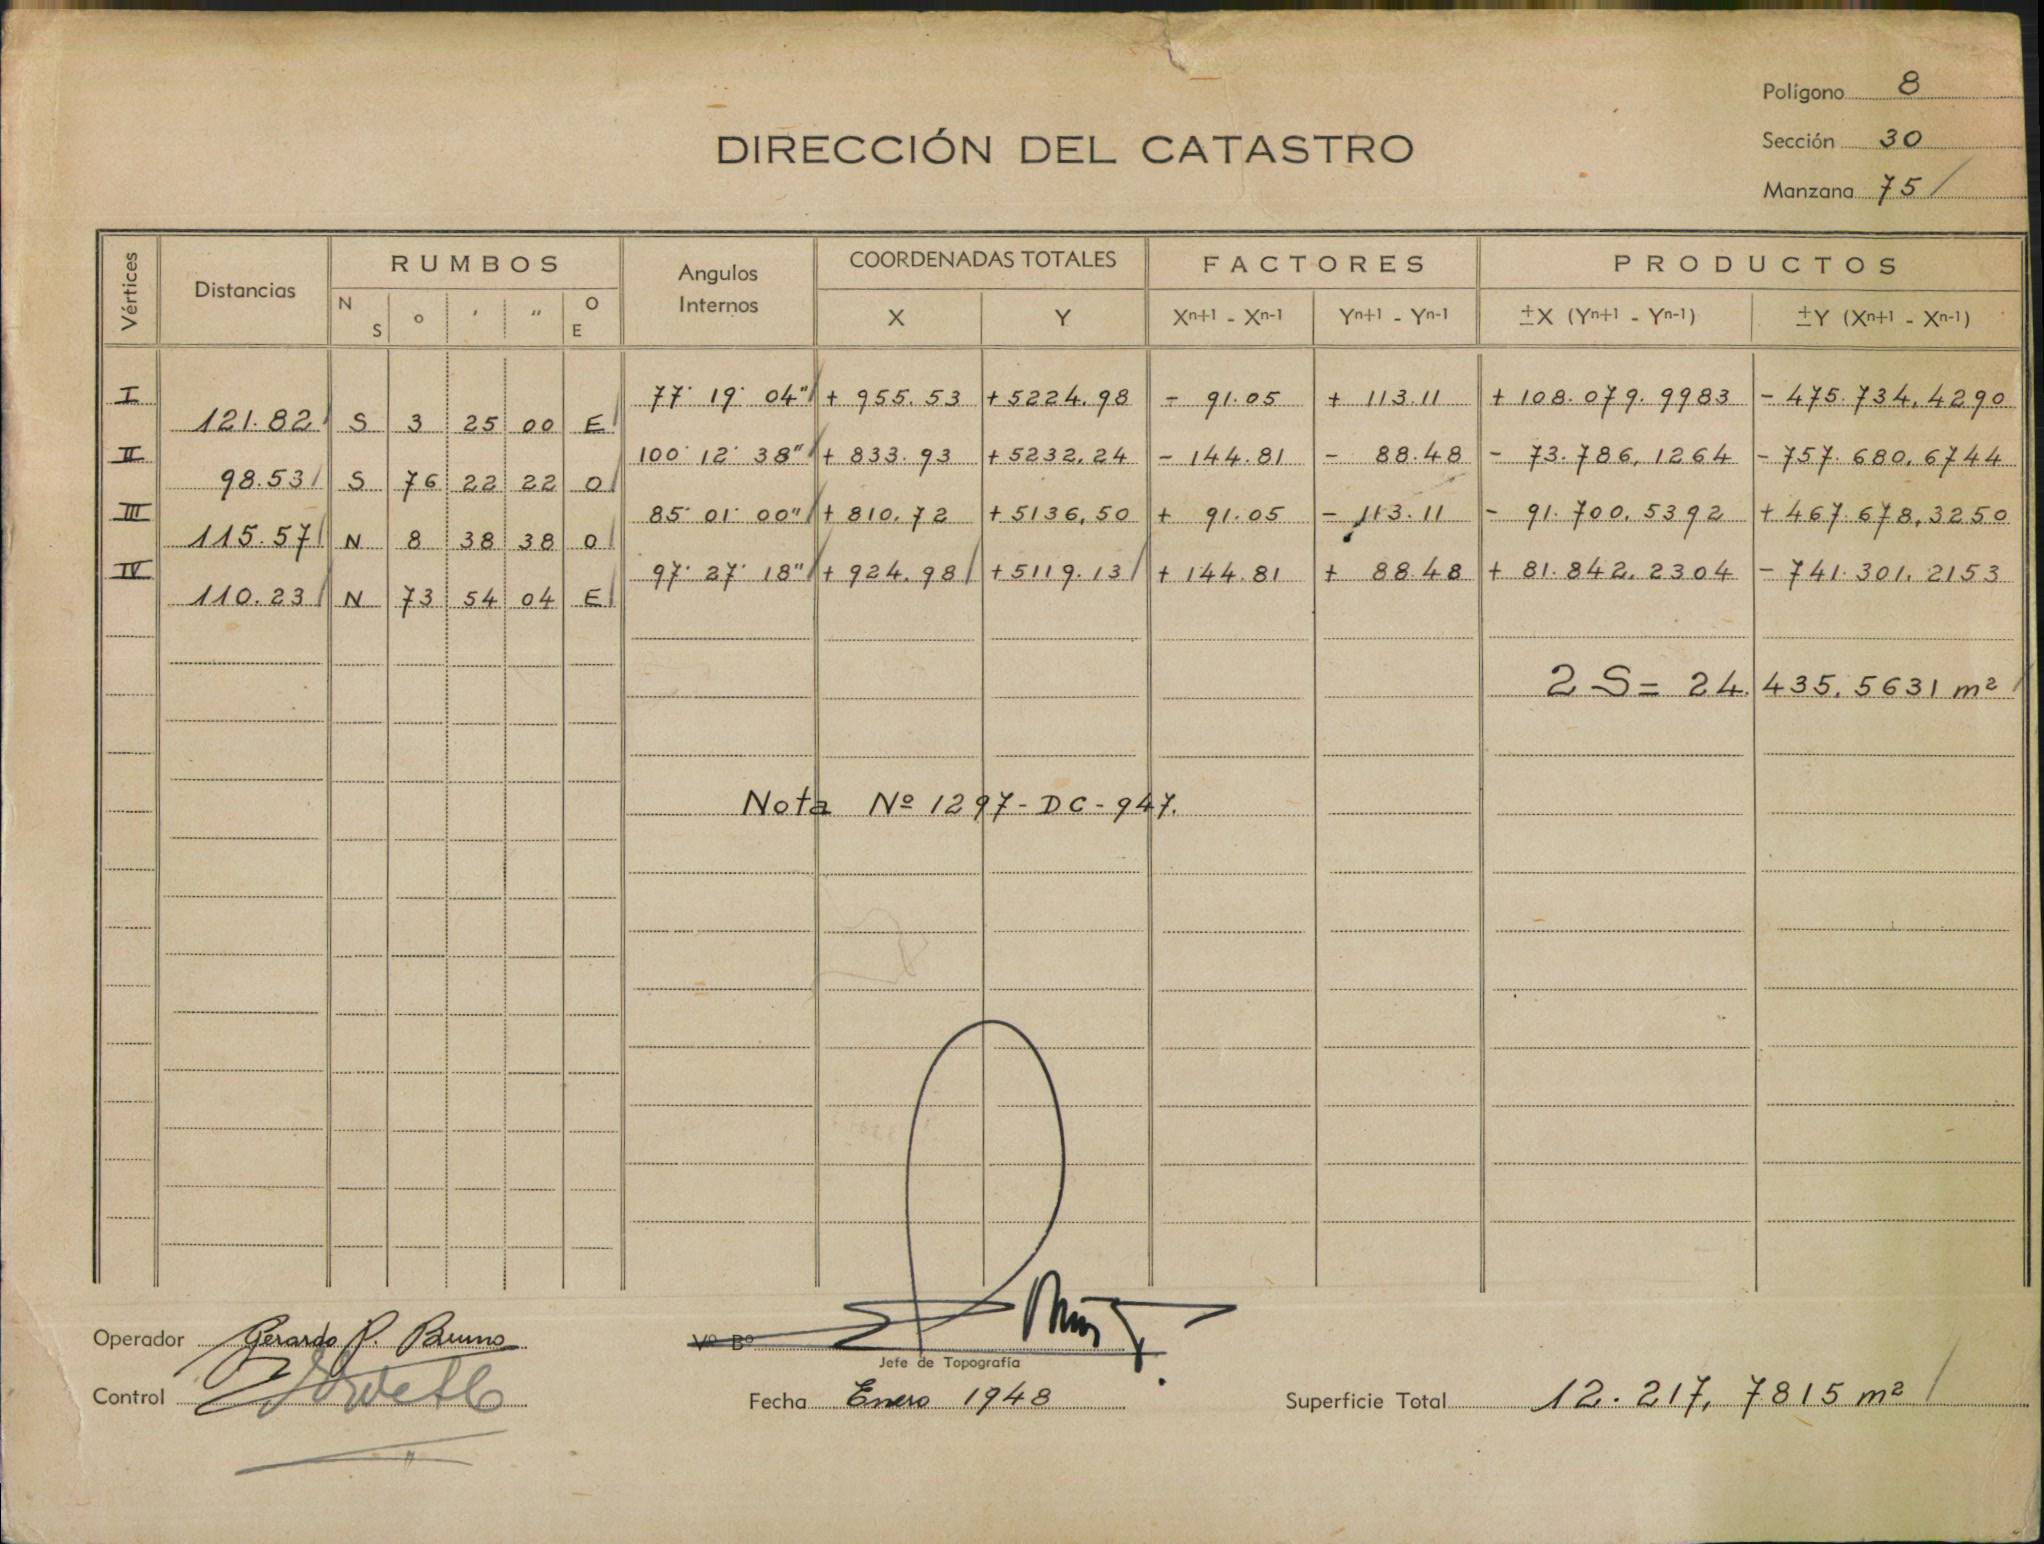 Polígono 8
DIRECCIÓN DEL CATASTRO
Sección 30
Manzana 75
Vértices Distancias RUMBOS Angulos Internos COORDENADAS TOTALES FACTORES PRODUCTOS
N S ° ′ ″ O E X Y Xn+1 - Xn-1 Yn+1 - Yn-1 ±X (Yn+1 - Yn-1) ±Y (Xn+1 - Xn-1)
I 77° 19' 04" + 955.53 +5224.98 - 91.05 + 113.11 + 108.079.9983 - 475.734,4290
121.82 S 3 25 00 E
II 100° 12' 38" + 833.93 +5232.24 - 144.81 - 88.48 - 73.786,1264 - 757.680,6744
98.53 S 76 22 22 O
III 85° 01' 00" + 810.72 +5136,50 + 91.05 - 113.11 - 91.700,5392 + 467.678,3250
115.57 N 8 38 38 O
IV 97° 27' 18" + 924.98 +5119.13 + 144.81 + 88.48 + 81.842,2304 - 741.301,2153
110.23 N 73 54 04 E
2 S = 24.435,5631 m²
Nota Nº 1297-DC-947.
Operador Gerardo P. Bruno
Vº Bº
Jefe de Topografía
Control
Fecha Enero 1948
Superficie Total 12.217,7815 m²